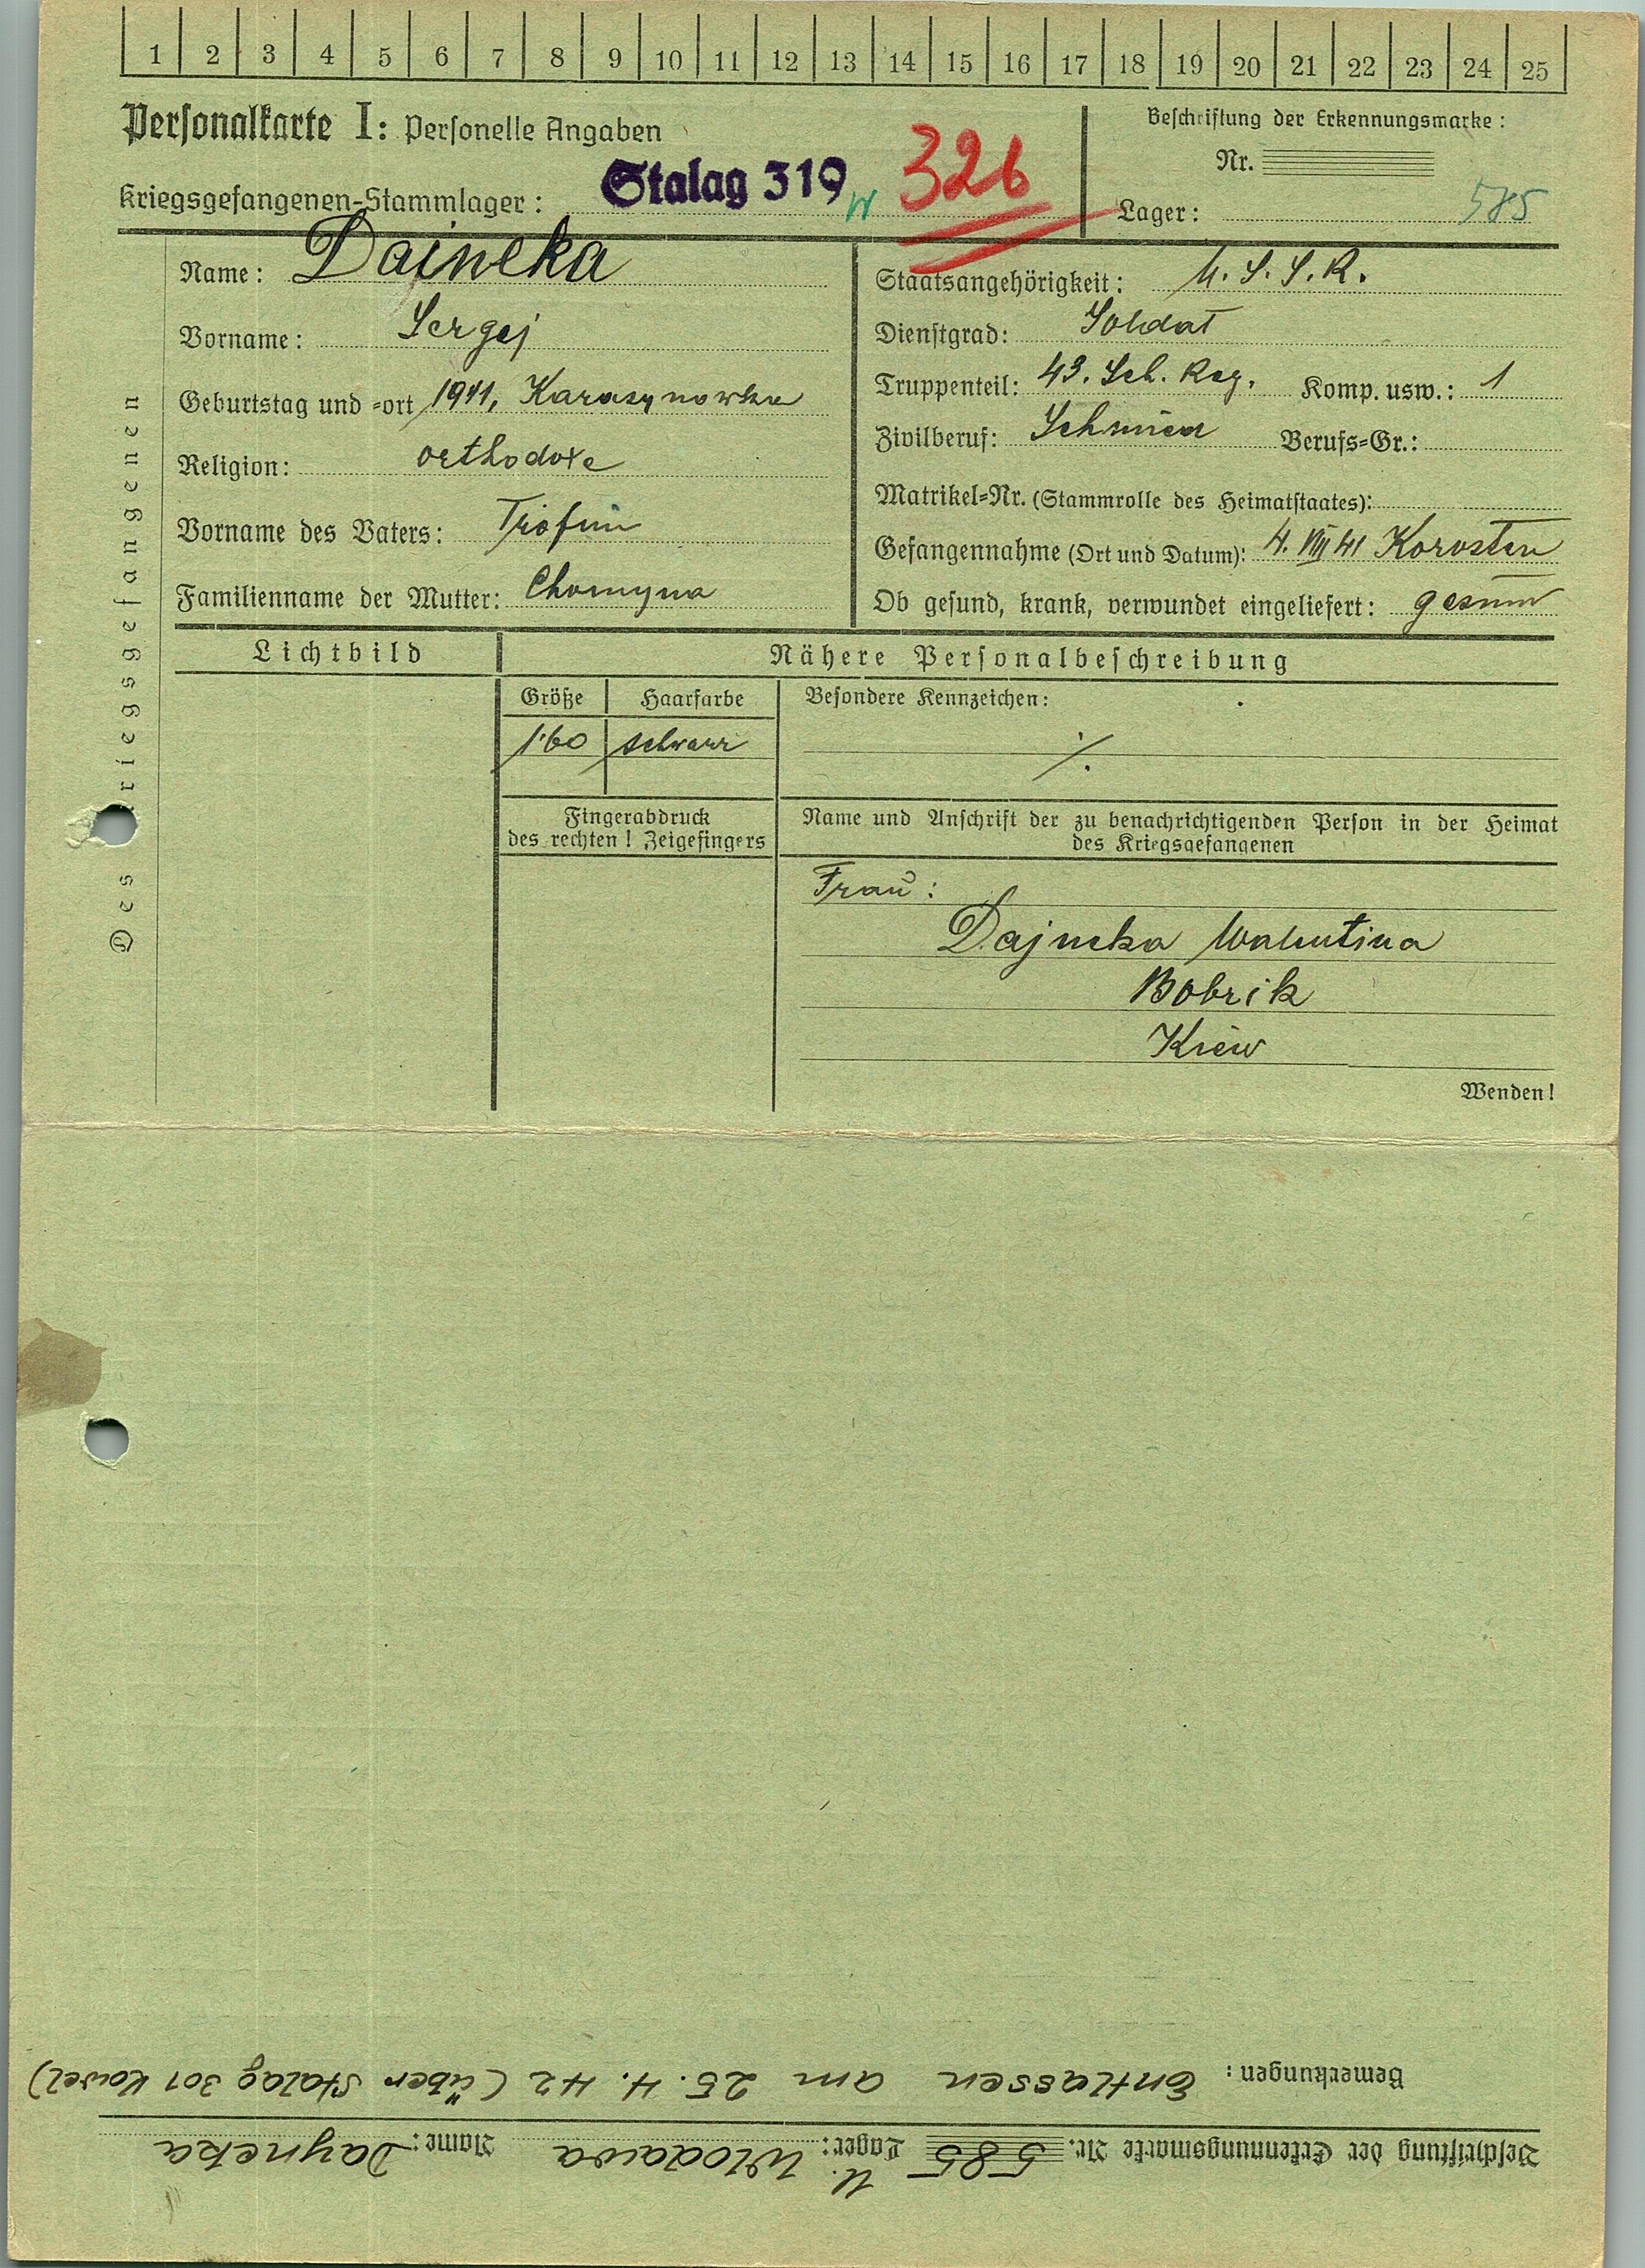 1 2 3 4 5 6 7 8 9 10 11 12 13 14 15 16 17 18 19 20 21 22 23 24 25
Personalkarte I: Personelle Angaben
Beschriftung der Erkennungsmarke:
Nr.
Kriegsgefangenen-Stammlager: Stalag 319 326
Lager: 585
Des Kriegsgefangenen
Name: Dajneka
Staatsangehörigkeit: U.S.S.R.
Vorname: Sergej
Dienstgrad: Soldat
Geburtstag und -ort 1911, Karasynowka
Truppenteil: 43. Sch. Reg. Komp. usw.: 1
Religion: orthodoxe
Zivilberuf: Schmied Berufs-Gr.:
Matrikel-Nr. (Stammrolle des Heimatstaates):
Vorname des Vaters: Trofim
Gefangennahme (Ort und Datum): 4. VIII 41 Korosten
Familienname der Mutter: Chomyna
Ob gesund, krank, verwundet eingeliefert: gesund
Lichtbild
Nähere Personalbeschreibung
Größe Haarfarbe
Besondere Kennzeichen:
1.60 schwarz
./.
Fingerabdruck
des rechten! Zeigefingers
Name und Anschrift der zu benachrichtigenden Person in der Heimat
des Kriegsgefangenen
Frau:
Dajneka Walentina
Bobrik
Kiew
Wenden!
Beschriftung der Erkennungsmarke Nr. 585 Lager: Wlodawa Name: Dayneka
Bemerkungen: Entlassen am 25.4.42 (über Stalag 301 Kowel)